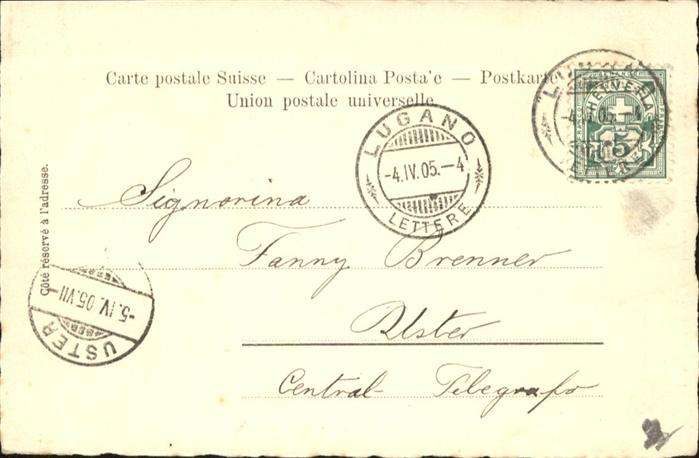 Carte postale Suisse — Cartolina Posta'e — Postkarte
Union postale universelle
HELVETIA
5
LUGANO
-4.IV.05.-4
LETTERE
Côté réservé à l'adresse.
Signorina
Fanny Brenner
Uster
Central Telegrafo
-5.IV.05.VII-
USTER